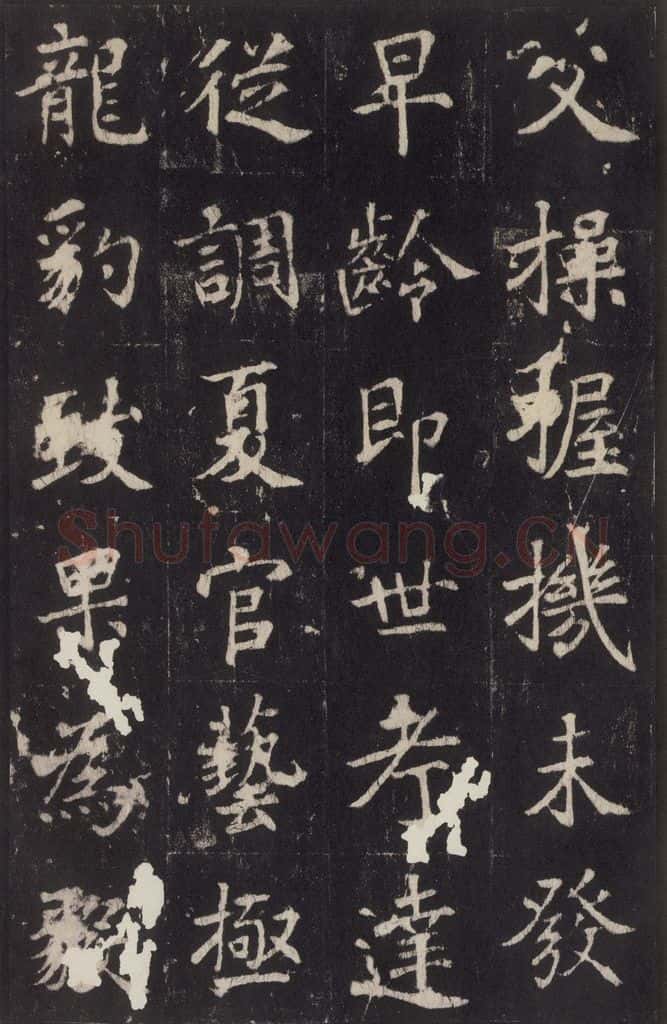 父操握機未發
早齡即世考達
從調夏官藝極
龍豹致果為毅
Shufawang.cn